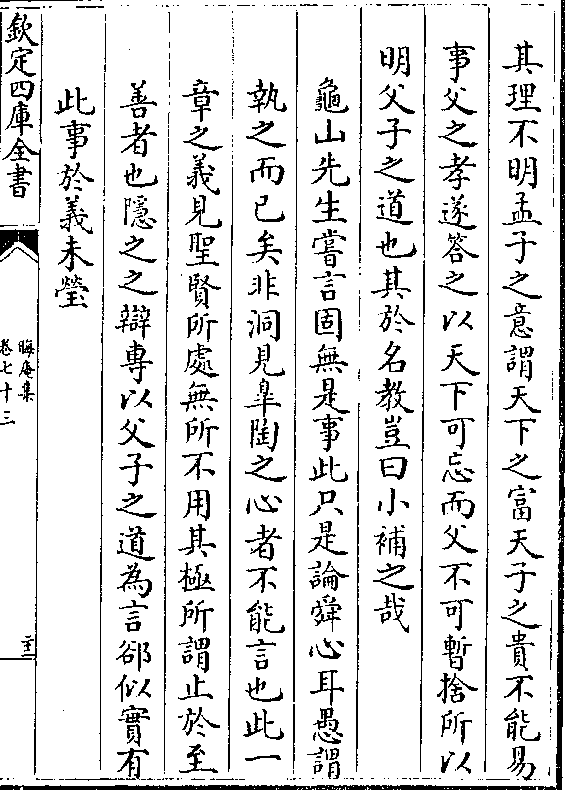 其理不明孟子之意謂天下之富天子之貴不能易
事父之孝遂答之以天下可忘而父不可暫捨所以
明父子之道也其於名教豈曰小補之哉
龜山先生嘗言固無是事此只是論舜心耳愚謂
執之而已矣非洞見臯陶之心者不能言也此一
章之義見聖賢所處無所不用其極所謂止於至
善者也隱之之辯專以父子之道為言郤似實有
此事於義未瑩
欽定四庫全書
晦庵集
卷七十三